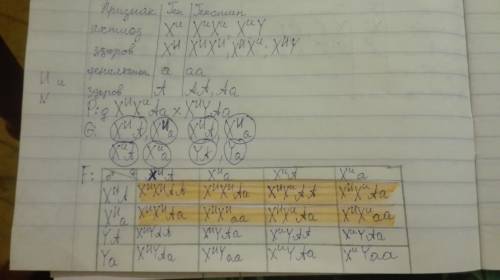 Признак | Ген | Генотип
ихтиоз | Xᵘ | XᵘXᵘ, XᵘY
здоров | Xᴴ | XᴴXᴴ, XᴴXᵘ, XᴴY
а | аа
здоров | А | АА, Аа
P: ♀ XᴴXᵘ Aa × XᴴY Aa
G: XᴴA Xᴴa XᴴA Xᴴa
XᵘA Xᵘa YA, Ya
F: XᴴA | Xᴴa | XᵘA | Xᵘa
XᴴA | XᴴXᴴAA | XᴴXᴴAa | XᴴXᵘAA | XᴴXᵘAa
Xᴴa | XᴴXᴴAa | XᴴXᴴaa | XᴴXᵘAa | XᴴXᵘaa
YA | XᴴYAA | XᴴYAa | XᵘYAA | XᵘYAa
Ya | XᴴYAa | XᴴYaa | XᵘYAa | XᵘYaa